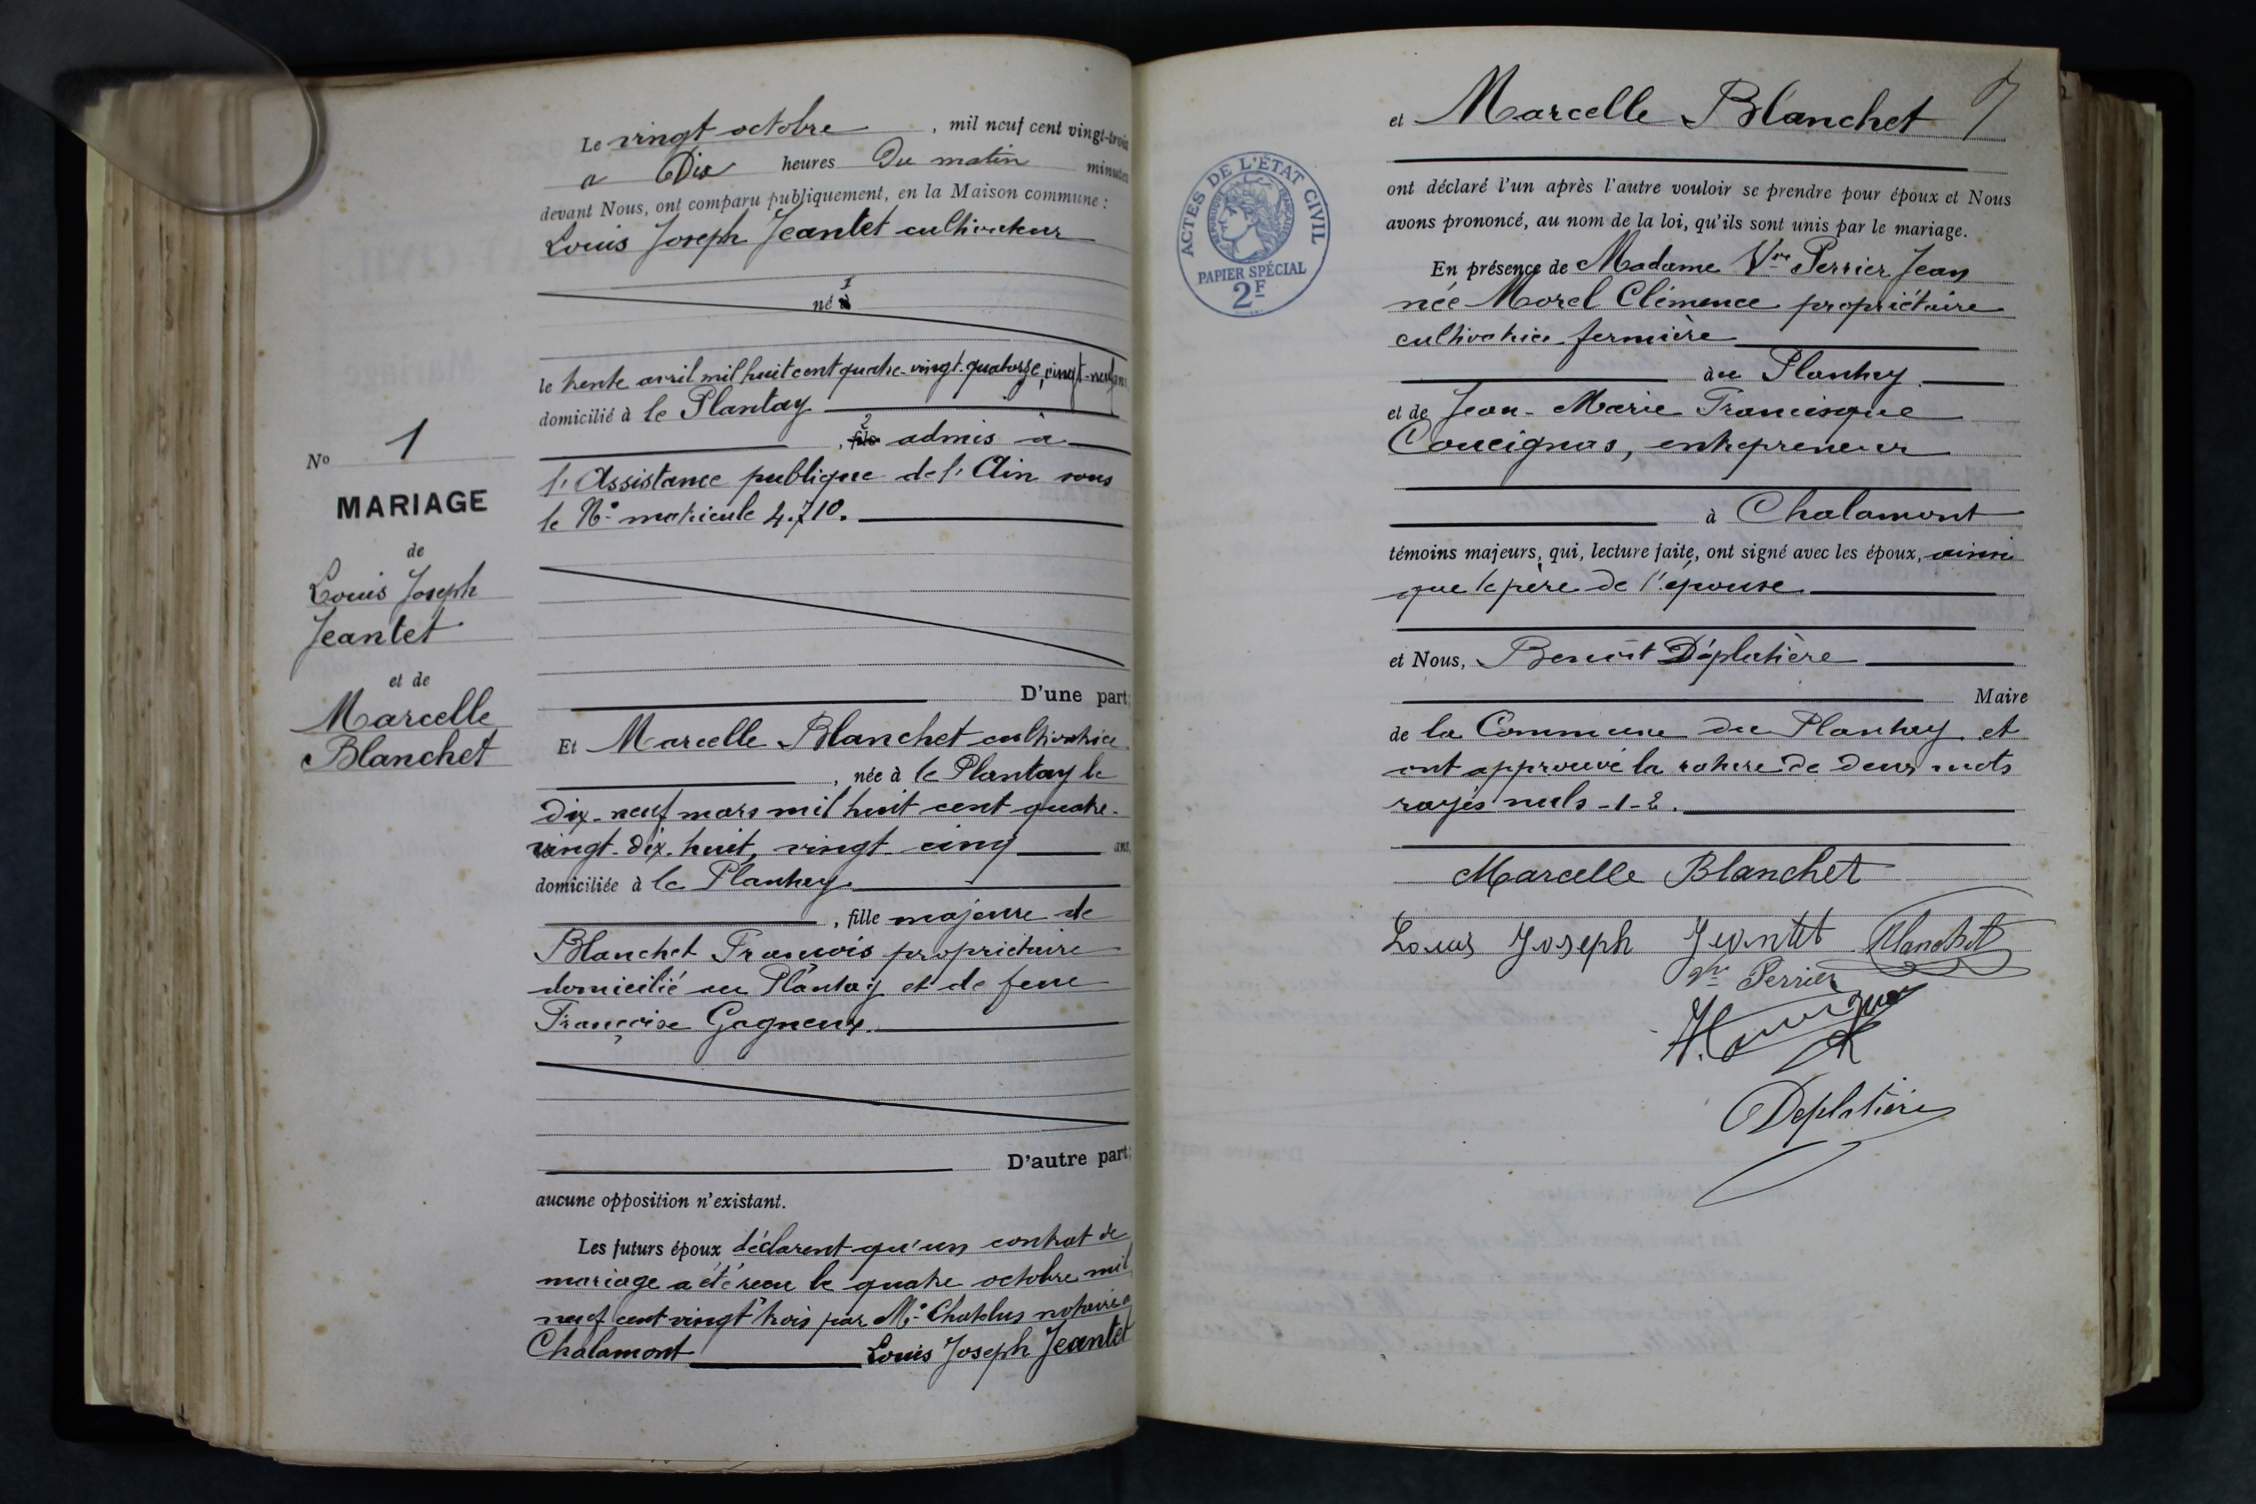 Le vingt octobre , mil neuf cent vingt-trois
a Dix heures Du matin minutes
devant Nous, ont comparu publiquement, en la Maison commune :
Louis Joseph Jeantet cultivateur
1
né à
le trente avril mil huit cent quatre-vingt-quatorze, vingt-neuf ans
domicilié à le Plantay
2
, fils admis à
l'Assistance publique de l'Ain sous
le N° matricule 4.710.
D'une part;
Et Marcelle Blanchet cultivatrice
, née à le Plantay le
dix-neuf mars mil huit cent quatre-
vingt-dix-huit, vingt-cinq ans,
domiciliée à le Plantay
, fille majeure de
Blanchet François propriétaire
domicilié au Plantay et de feue
Françoise Gagneux.
D'autre part;
aucune opposition n'existant.
Les futurs époux déclarent qu'un contrat de
mariage a été reçu le quatre octobre mil
neuf cent vingt trois par Me Chatelus notaire à
Chalamont Louis Joseph Jeantet
N° 1
MARIAGE
de
Louis Joseph
Jeantet
et de
Marcelle
Blanchet
et Marcelle Blanchet
ACTES DE L'ÉTAT CIVIL
RÉPUBLIQUE FRANÇAISE
PAPIER SPÉCIAL
2F
ont déclaré l'un après l'autre vouloir se prendre pour époux et Nous
avons prononcé, au nom de la loi, qu'ils sont unis par le mariage.
En présence de Madame Vve Perrier Jean
née Morel Clémence propriétaire
cultivatrice fermière
au Plantay
et de Jean-Marie Francisque
Coucignas, entrepreneur
à Chalamont
témoins majeurs, qui, lecture faite, ont signé avec les époux, ainsi
que le père de l'épouse
et Nous, Benoit Déplatière
Maire
de la Commune du Plantay et
ont approuvé la rature de deux mots
rayés nuls -1-2.
Marcelle Blanchet
Louis Joseph Jeantet Blanchet
Vve Perrier
Deplatière